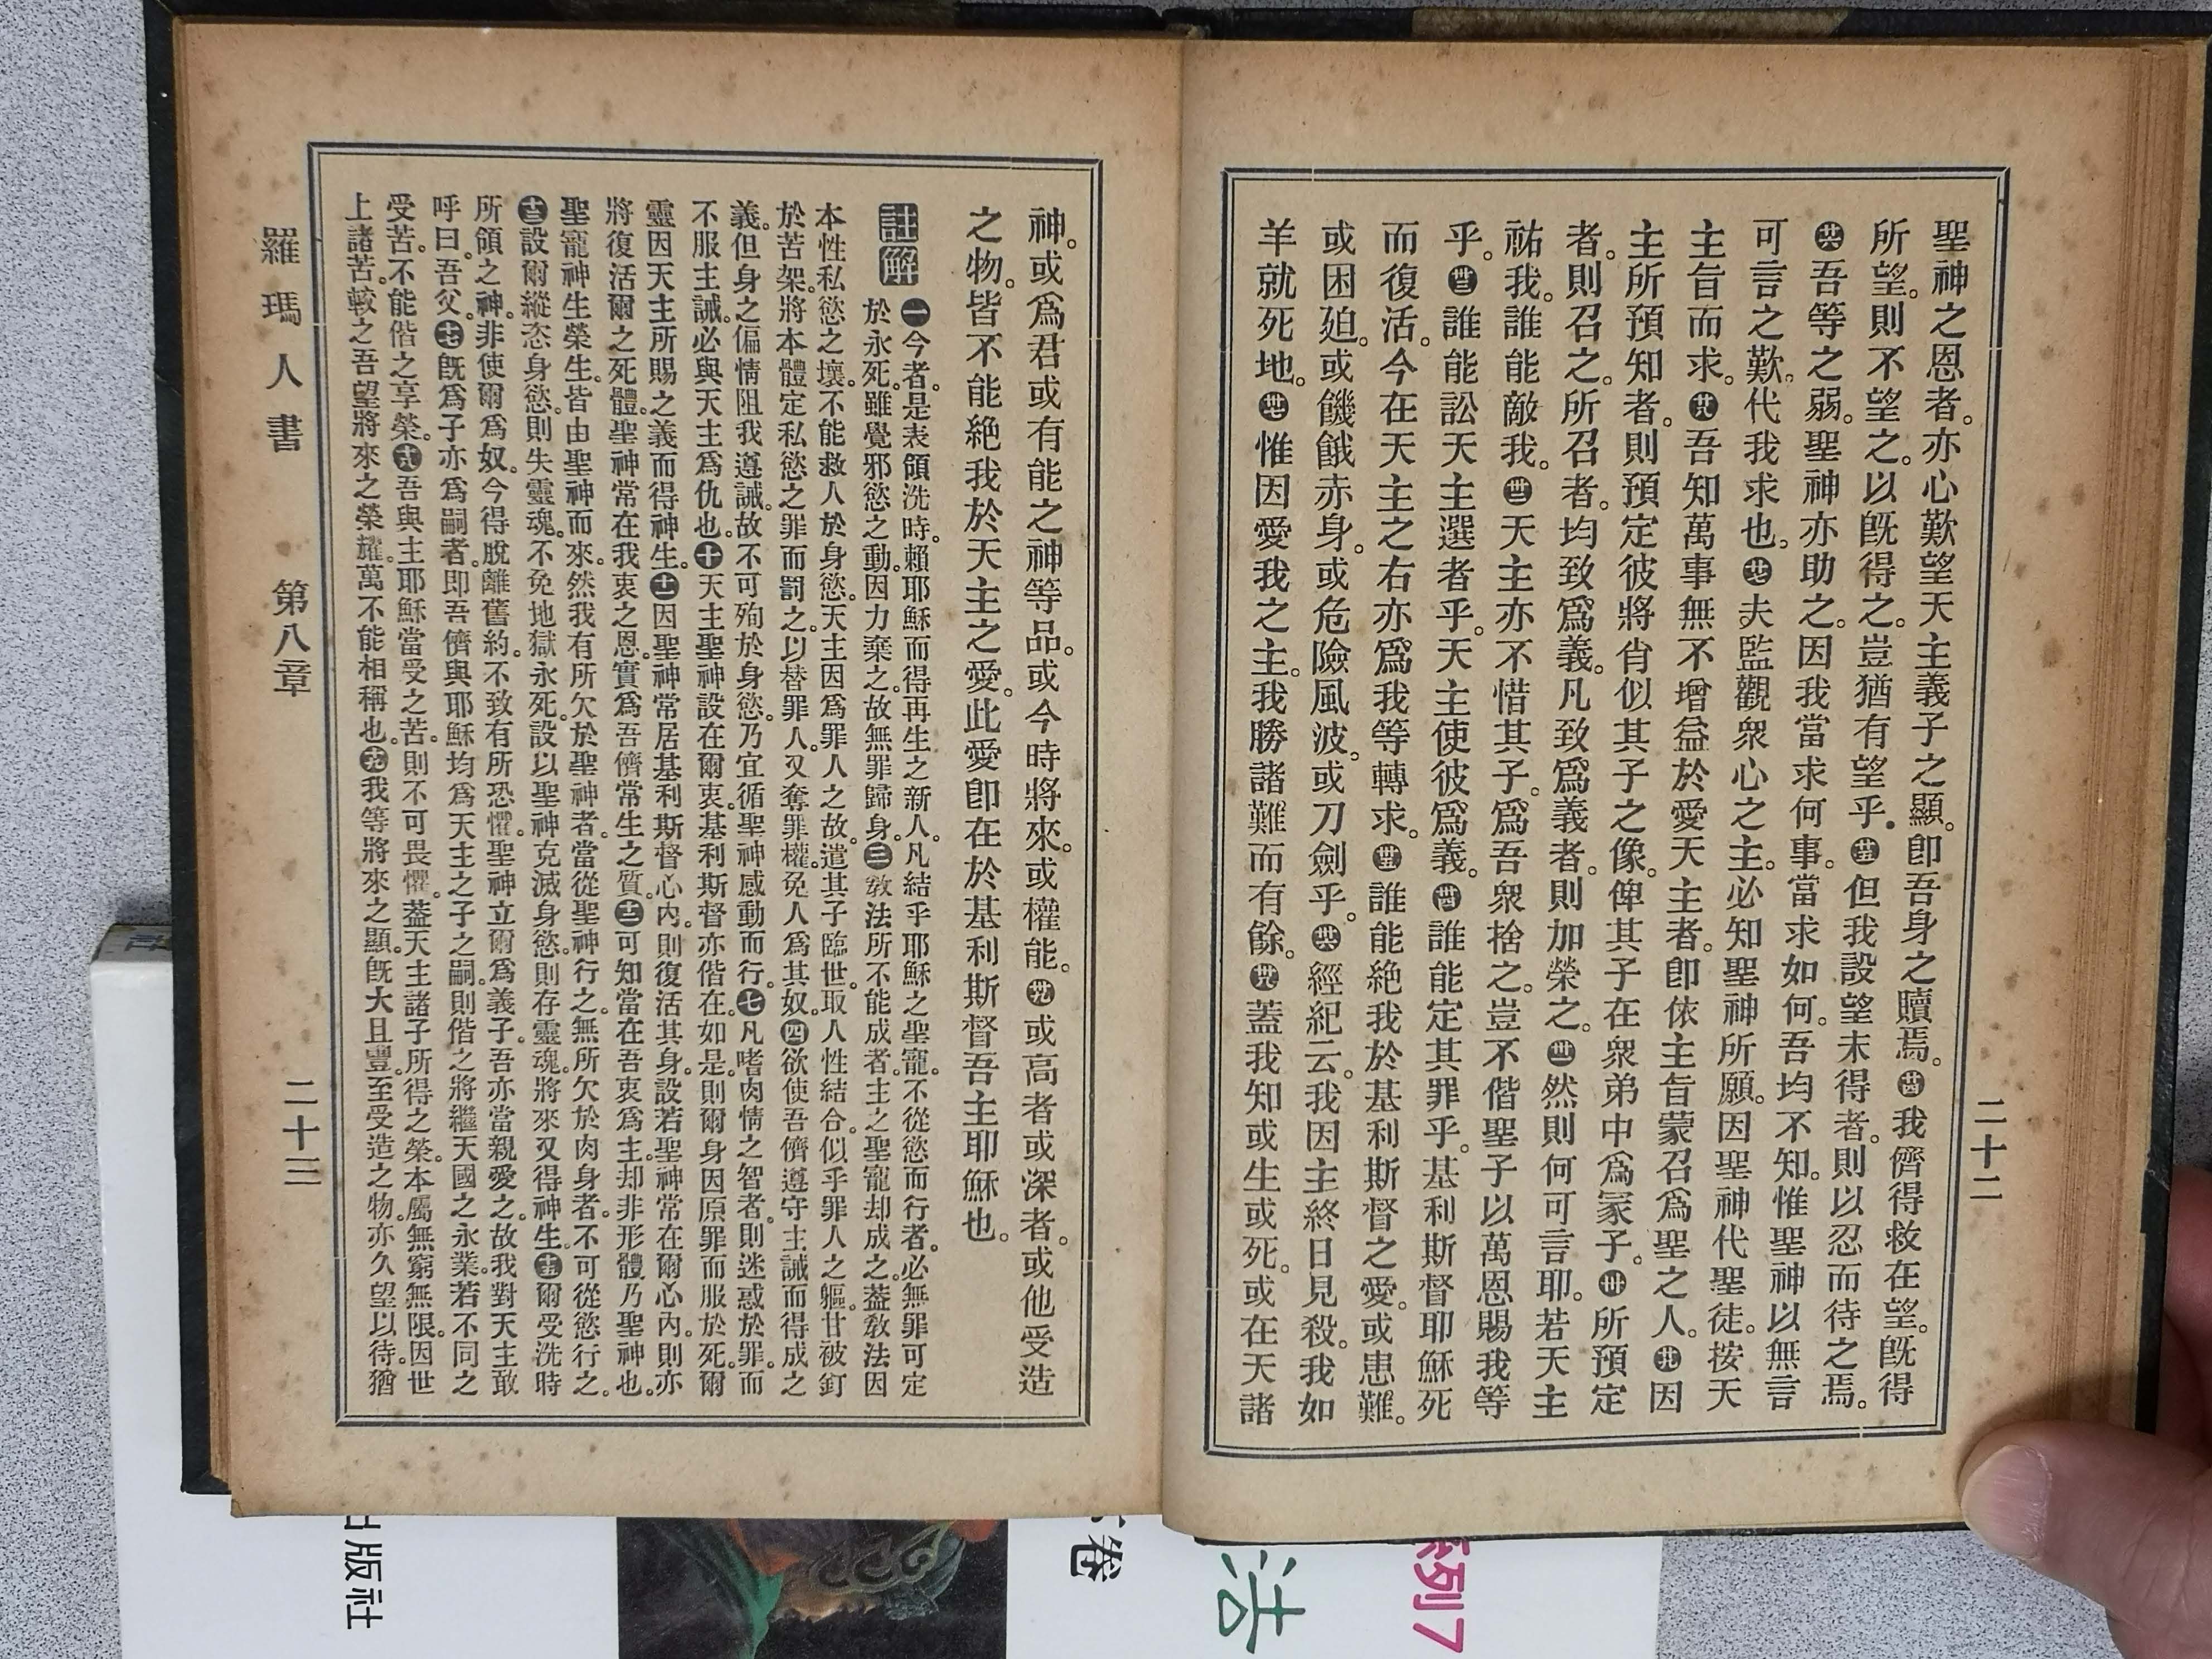 二十二
聖神之恩者。亦心歎望天主義子之顯。卽吾身之贖焉。㉔我儕得救在望。旣得
所望。則不望之。以旣得之。豈猶有望乎。㉕但我設望未得者。則以忍而待之焉。
㉖吾等之弱。聖神亦助之。因我當求何事。當求如何。吾均不知。惟聖神以無言
可言之歎。代我求也。㉗夫監觀衆心之主。必知聖神所願。因聖神代聖徒。按天
主旨而求。㉘吾知萬事無不增益於愛天主者。卽依主旨蒙召爲聖之人。㉙因
主所預知者。則預定彼將肖似其子之像。俾其子在衆弟中爲冢子。㉚所預定
者。則召之。所召者。均致爲義。凡致爲義者。則加榮之。㉛然則何可言耶。若天主
祐我。誰能敵我。㉜天主亦不惜其子。爲吾衆捨之。豈不偕聖子以萬恩賜我等
乎。㉝誰能訟天主選者乎。天主使彼爲義。㉞誰能定其罪乎。基利斯督耶穌死
而復活。今在天主之右亦爲我等轉求。㉟誰能絶我於基利斯督之愛。或患難。
或困廹。或饑餓赤身。或危險風波。或刀劍乎。㊱經紀云。我因主終日見殺。我如
羊就死地。㊲惟因愛我之主。我勝諸難而有餘。㊳蓋我知或生或死。或在天諸
神。或爲君或有能之神等品。或今時將來。或權能。㊴或高者或深者。或他受造
之物。皆不能絶我於天主之愛。此愛卽在於基利斯督吾主耶穌也。
註解 ㊀今者。是表領洗時。賴耶穌而得再生之新人。凡結乎耶穌之聖寵。不從慾而行者。必無罪可定
於永死。雖覺邪慾之動。因力棄之。故無罪歸身。㊂敎法所不能成者。主之聖寵却成之。葢敎法因
本性私慾之壞。不能救人於身慾。天主因爲罪人之故。遣其子臨世。取人性結合。似乎罪人之軀。甘被釘
於苦架。將本體定私慾之罪而罰之。以替罪人。又奪罪權。免人爲其奴。㊃欲使吾儕遵守主誡而得成之
義。但身之偏情阻我遵誡。故不可殉於身慾。乃宜循聖神感動而行。㊆凡嗜肉情之智者。則迷惑於罪。而
不服主誡。必與天主爲仇也。㊉天主聖神設在爾衷。基利斯督亦偕在。如是。則爾身因原罪而服於死。爾
靈因天主所賜之義而得神生。⑪因聖神常居基利斯督心內。則復活其身。設若聖神常在爾心內。則亦
將復活爾之死體。聖神常在我衷之恩。實爲吾儕常生之質。⑫可知當在吾衷爲主。却非形體乃聖神也。
聖寵神生榮生。皆由聖神而來。然我有所欠於聖神者。當從聖神行之。無所欠於肉身者。不可從慾行之。
⑬設爾縱恣身慾。則失靈魂。不免地獄永死。設以聖神克滅身慾。則存靈魂。將來又得神生。⑮爾受洗時
所領之神。非使爾爲奴。今得脫離舊約。不致有所恐懼。聖神立爾爲義子。吾亦當親愛之。故我對天主敢
呼曰。吾父。⑰旣爲子亦爲嗣者。卽吾儕與耶穌均爲天主之子之嗣。則偕之將繼天國之永業。若不同之
受苦。不能偕之享榮。⑱吾與主耶穌當受之苦。則不可畏懼。葢天主諸子所得之榮。本屬無窮無限。因世
上諸苦。較之吾望將來之榮耀。萬不能相稱也。⑲我等將來之顯。旣大且豐。至受造之物。亦久望以待。猶
羅瑪人書 第八章 二十三
出版社
卷
活
系列7